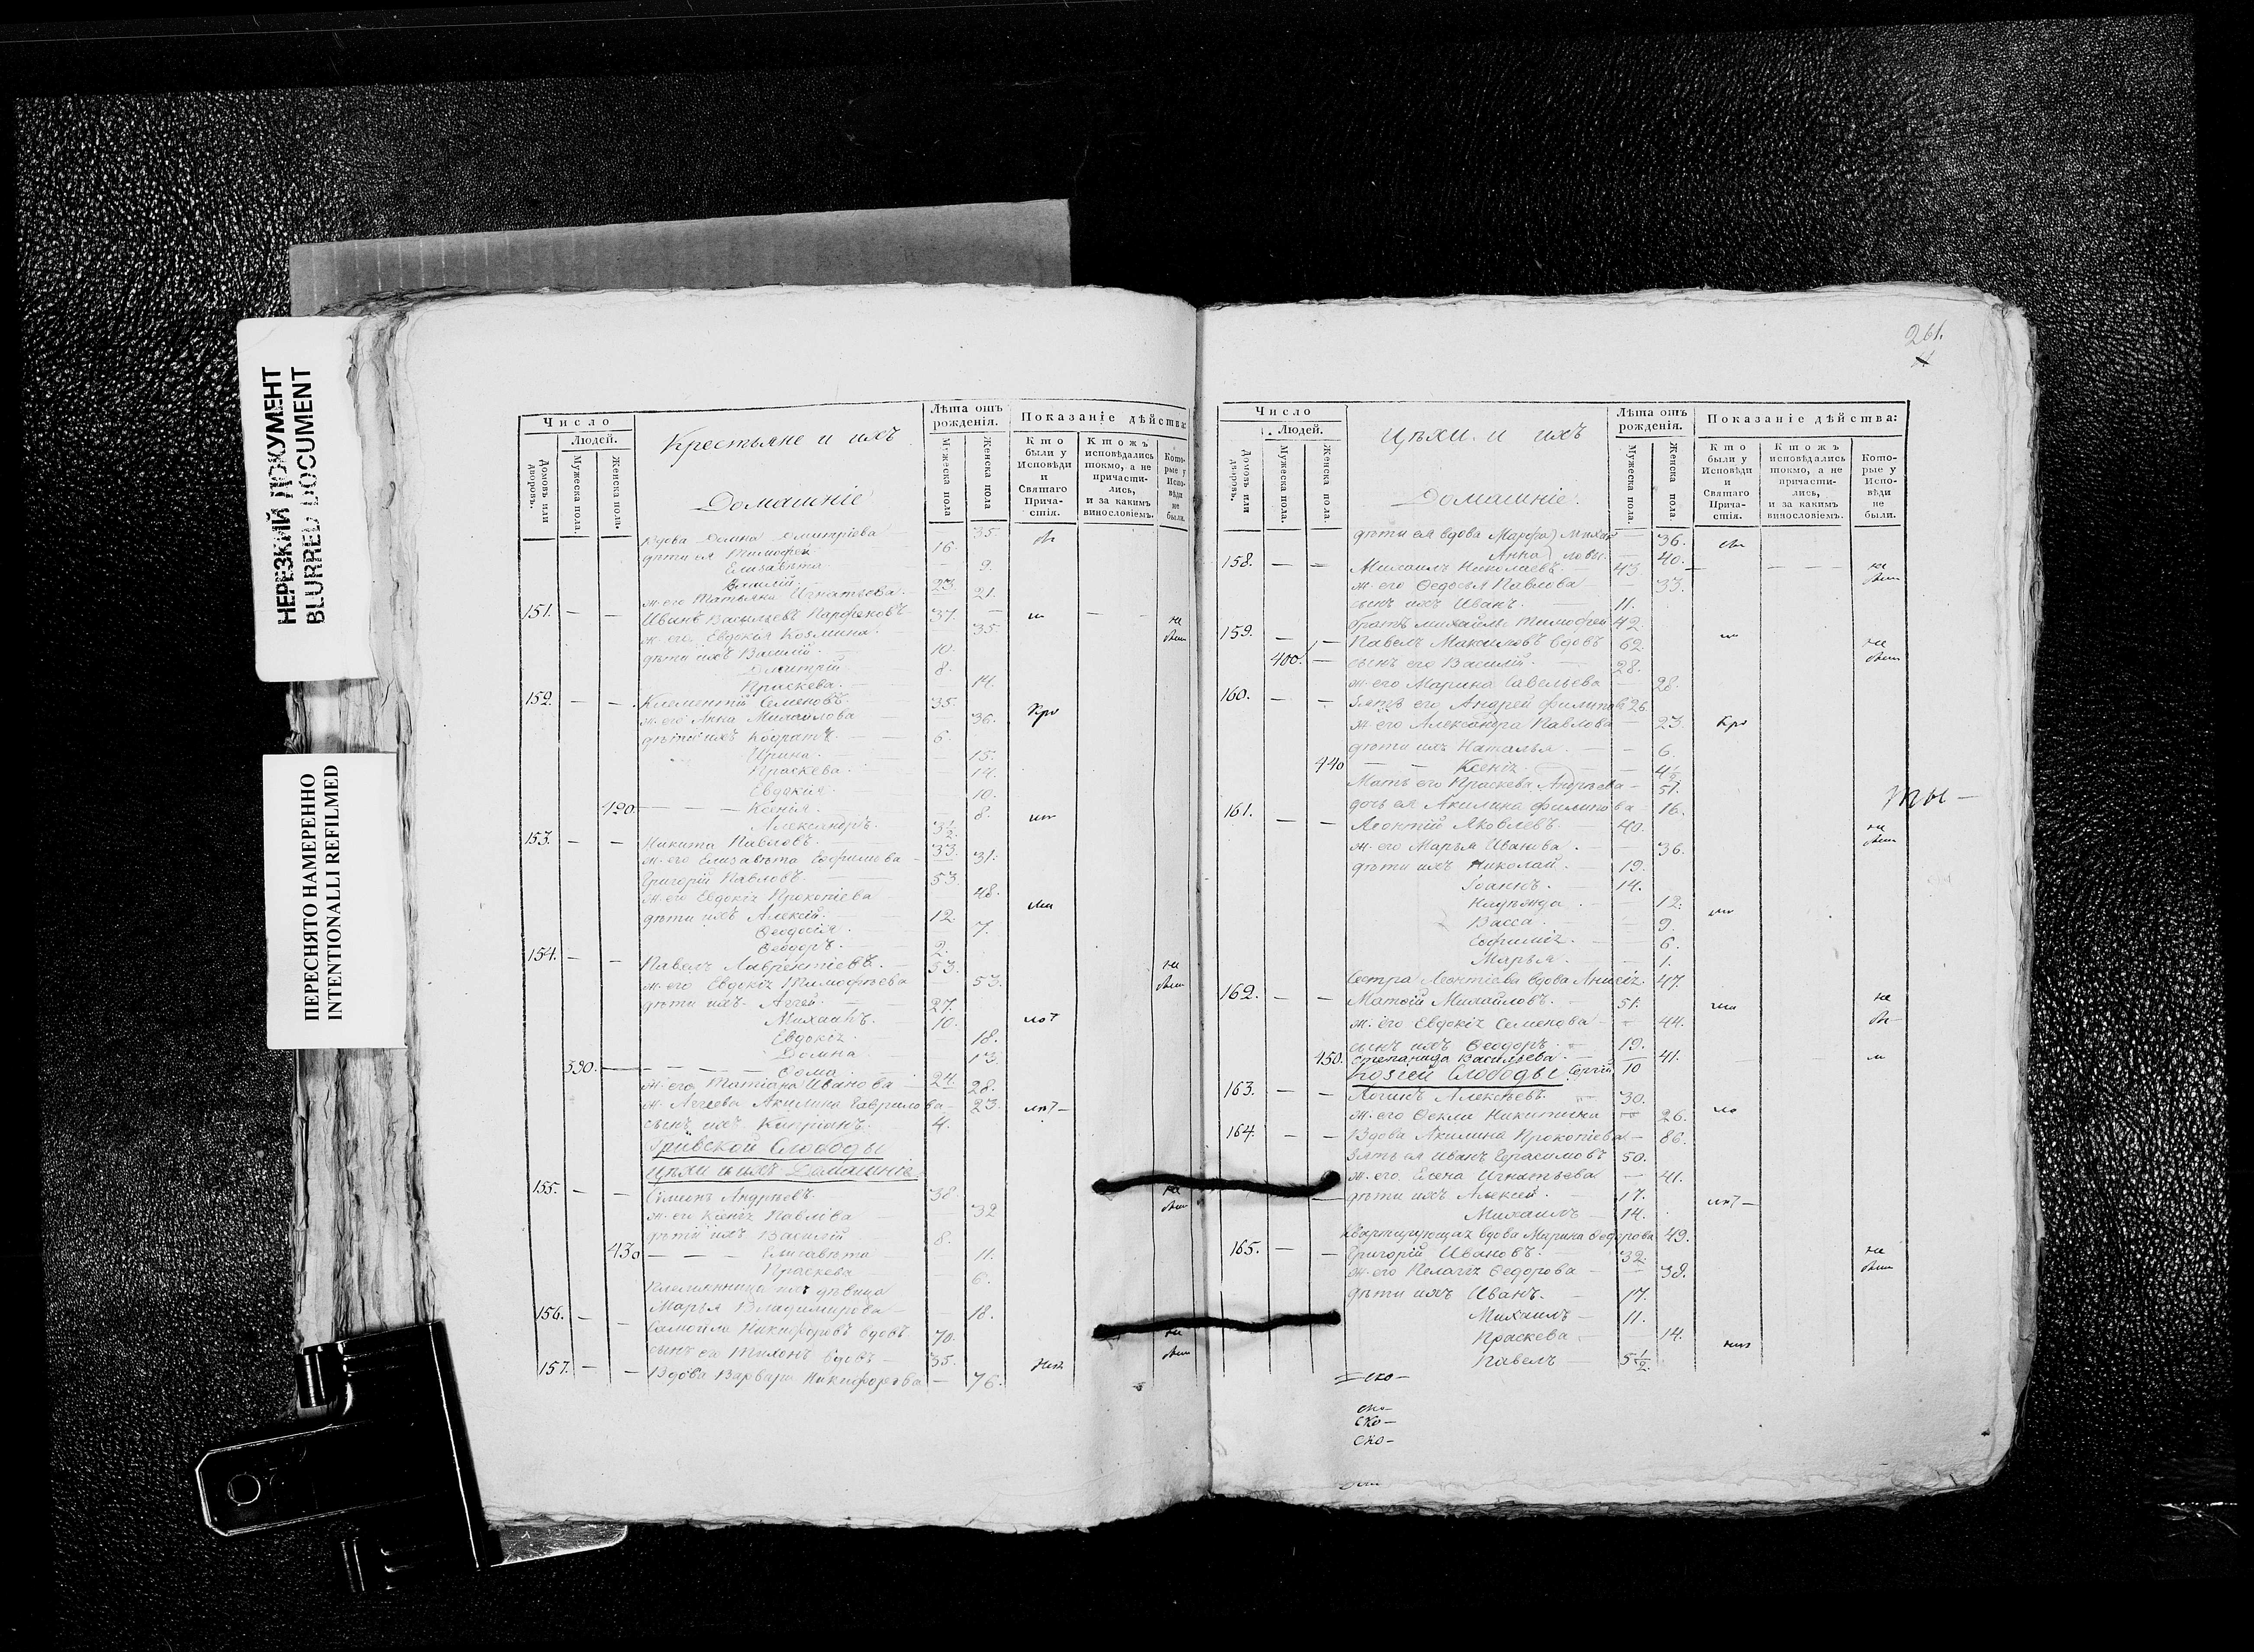 НЕРЕЗКИЙ ДОКУМЕНТ
BLURRED DOCUMENT
ПЕРЕСНЯТО НАМЕРЕННО
INTENTIONALLI REFILMED
Число
Людей.
Домовъ или дворовъ.
Мужеска пола.
Женска пола.
Крестьяне и ихъ
Домашніе
Лѣта отъ рожденія.
Мужеска пола
Женска пола
Показаніе дѣйства:
Кто были у Исповѣди и Святаго Причастія.
Ктожъ исповѣдались токмо, а не причастились, и за какимъ винословіемъ.
Которые у Исповѣди не были.
Вдова Домна Дмитріева 35.
дѣти ея Тимофей 16.
Елизавѣта 9.
Василій 23.
ж. его Татьяна Игнатьева 21.
151. Иванъ Васильевъ Парфеновъ 37.
ж. его Евдокія Козмина 35.
дѣти ихъ Василій 10.
Дмитрій 8.
Праскева 14.
152. Климентій Семеновъ 35.
ж. его Анна Михайлова 36.
дѣти ихъ Кодратъ 6.
Ирина 15.
Праскева 14.
Евдокія 10.
420 Ксенія 8.
Александръ 3 1/2
153. Никита Павловъ 33.
ж. его Елизавѣта Евфимова 31.
Григорій Павловъ 53.
ж. его Евдокія Прокопіева 48.
дѣти ихъ Алексій 12.
Ѳеодосія 7.
Ѳеодоръ 2.
154. Павелъ Лаврентіевъ 53.
ж. его Евдокія Тимофѣева 53.
дѣти ихъ Аггей 27.
Михаилъ 10.
Евдокія 18.
Домна 13.
390. Ѳома 24.
ж. его Татіана Иванова 28.
ж. Аггеева Акилина Гаврилова 23.
сынъ ихъ Капріанъ 4.
Гривской Слободы
цѣхи и ихъ Домашніе
155. Симеонъ Андреевъ 38.
ж. его Ксенія Павлова 32
дѣти ихъ Василій 8.
430 Елисавѣта 11.
Праскева 6.
Племянница ихъ дѣвица
Марья Владимирова 18.
156. Самойло Никифоровъ вдовъ 70.
сынъ его Тихонъ вдовъ 35.
157. Вдова Варвара Никифорова 76.
261.
Число
Людей.
Домовъ или дворовъ.
Мужеска пола.
Женска пола.
Цѣхи и ихъ
Домашніе
Лѣта отъ рожденія.
Мужеска пола.
Женска пола.
Показаніе дѣйства:
Кто были у Исповѣди и Святаго Причастія.
Ктожъ исповѣдались токмо, а не причастились, и за какимъ винословіемъ.
Которые у Исповѣди не были.
дѣти ея вдова Марфа Михай 36.
Анна ловы 40.
158. Михаилъ Николаевъ 43
ж. его Ѳедосья Павлова 33.
сынъ ихъ Иванъ 11.
братъ Михайлы Тимофей 42.
159. Павелъ Максимовъ вдовъ 62.
400. сынъ его Василій 28.
ж. его Марина Савельева 28.
160. Зять его Андрей Филиповъ 26
ж. его Александра Павлова 23.
дѣти ихъ Наталья 6.
440 Ксенія 4 1/2
Мать его Праскева Андреева 51.
дочь ея Акилина Филипова 16.
161. Леонтій Яковлевъ 40.
ж. его Марья Иванова 36.
дѣти ихъ Николай 19.
Іоаннъ 14.
Надѣжда 12.
Васса 9.
Евфимія 6.
Марья 1.
Сестра Леонтіева вдова Анисія 47.
162. Матѳій Михайловъ 51.
ж. его Евдокія Семенова 44.
сынъ ихъ Ѳеодоръ 19.
450. Степанида Васильева 41.
Козіей Слободы Сергій 10
163. Логинъ Алексѣевъ 30.
ж. его Ѳекла Никитина 26.
164. Вдова Акилина Прокопіева 86.
Зять ея Иванъ Герасимовъ 50.
ж. его Елена Игнатьева 41.
дѣти ихъ Алексей 17.
Михаилъ 14.
квартирующая вдова Марина Ѳедорова 49.
165. Григорій Ивановъ 32.
ж. его Пелагія Ѳедорова 38.
дѣти ихъ Иванъ 17.
Михаилъ 11.
Праскева 14.
Павелъ 5 1/2
ско-
ско-
ско-